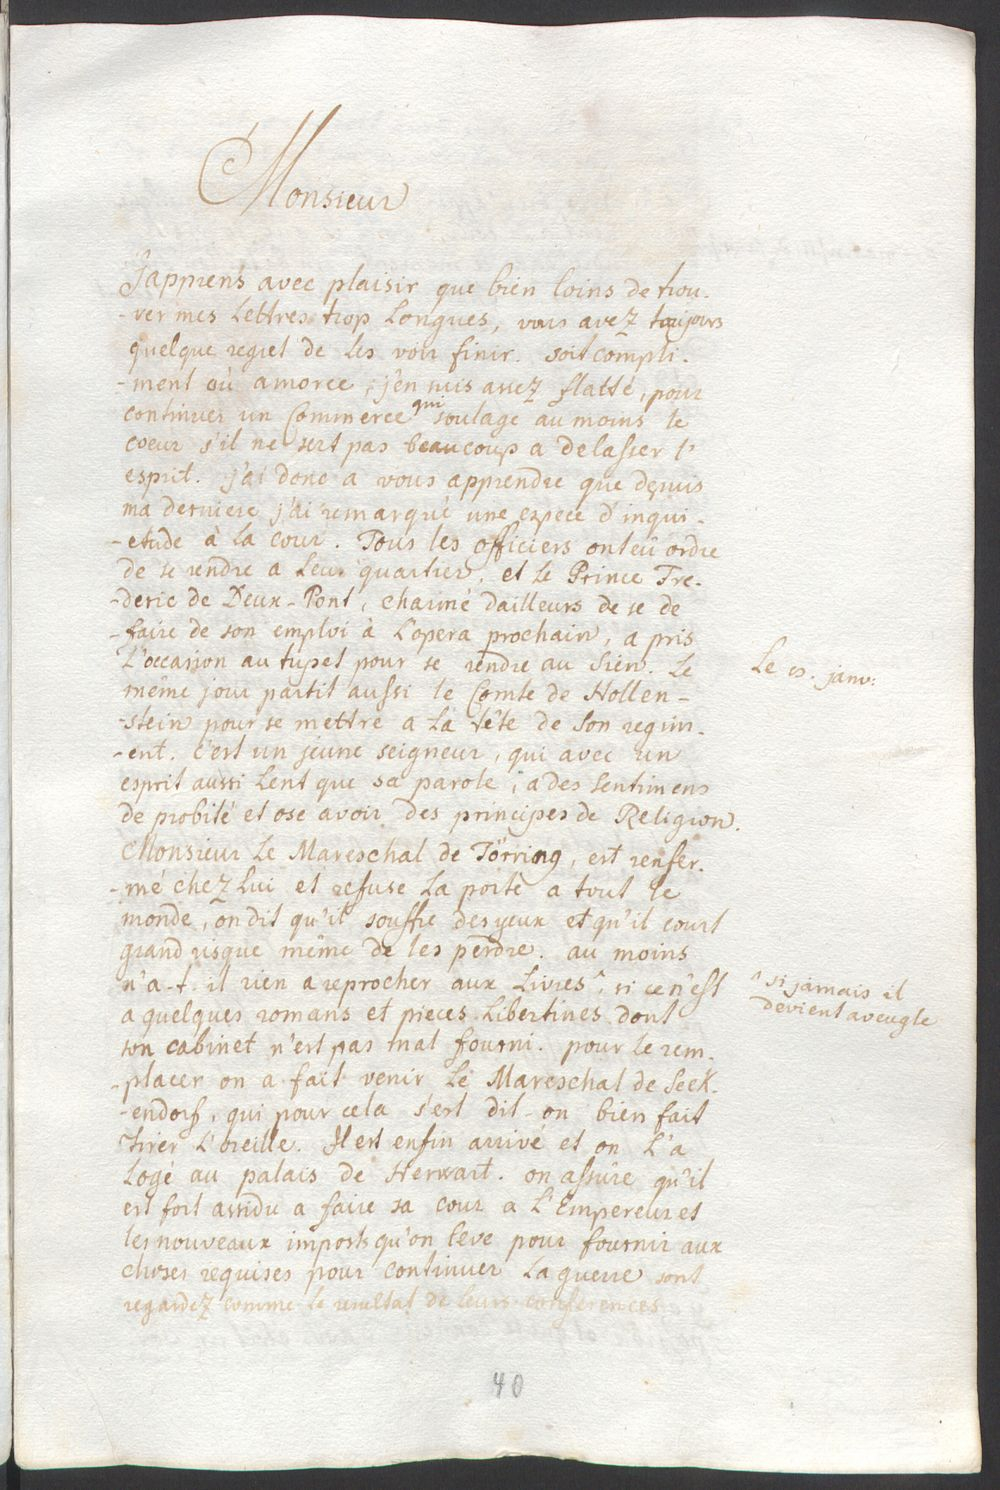 Monsieur
J'apprens avec plaisir que bien loins de trou-
-ver mes Lettres trop Longues, vous avez toujours
quelque regret de les voir finir. soit compli-
-ment où amorce, j'en suis assez flatté, pour
continuer un Commerce qui soulage au moins le
coeur s'il ne sert pas beaucoup a delasser l'
esprit. j'ai donc a vous apprendre que depuis
ma derniere j'ai remarqué une espece d'inqui-
-etude à la cour. Tous les officiers ont eû ordre
de se rendre a leur quartier, et le Prince Fre-
-deric de Deux-Pont, charmé dailleurs de se de
-faire de son emploi à L'opera prochain, a pris
L'occasion au tupet pour se rendre au Sien. Le
Le janv:
même jour partit aussi le Comte de Hollen-
-stein pour se mettre a La tête de son regim-
-ent. c'est un jeune seigneur, qui avec un
esprit aussi Lent que sa parole, a des sentimens
de probité et ose avoir des principes de Religion.
Monsieur Le Mareschal de Törring, est renfer-
-mé chez Lui et refuse La porte a tout le
monde, on dit qu'il souffre des yeux et qu'il court
grand risque même de les perdre. au moins
n'a-t-il rien a reprocher aux Livres ^, si ce n'est
^ si jamais il
devient aveugle
a quelques romans et pieces Libertines dont
son cabinet n'est pas mal fourni. pour le rem-
-placer on a fait venir Le Mareschal de Seck-
-endorf, qui pour cela s'est dit-on bien fait
tirer L'oreille. Il est enfin arrivé et on L'a
Logé au palais de Herwart. on assûre qu'il
est fort assidu a faire sa cour a L'Empereur et
les nouveaux imposts qu'on leve pour fournir aux
choses requises pour continuer La guerre sont
regardez comme le resultat de leurs conferences
40